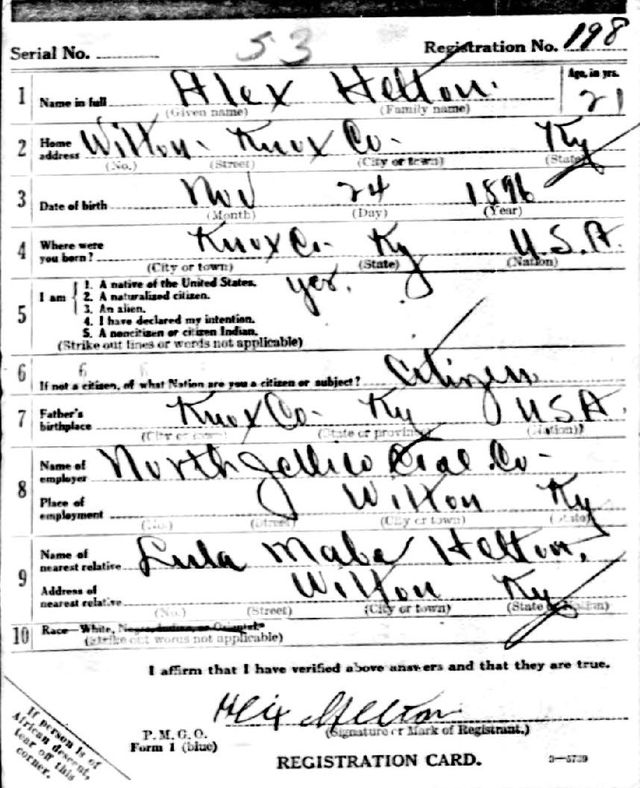 Serial No. 53 Registration No. 198
1 Name in full Alex Helton. Age, in yrs. 21
(Given name) (Family name)
2 Home address Wilton - Knox Co - Ky
(No.) (Street) (City or town) (State)
3 Date of birth Nov 24 1896
(Month) (Day) (Year)
4 Where were you born? Knox Co - Ky U.S.A.
(City or town) (State) (Nation)
5 I am
1. A native of the United States. yes.
2. A naturalized citizen.
3. An alien.
4. I have declared my intention.
5. A noncitizen or citizen Indian.
(Strike out lines or words not applicable)
6 If not a citizen, of what Nation are you a citizen or subject? Citizen
7 Father's birthplace Knox Co - Ky U.S.A.
(City or town) (State or province) (Nation)
8 Name of employer North Jellico Coal Co -
Place of employment Wilton Ky
(No.) (Street) (City or town) (State)
9 Name of nearest relative Lula Mabe Helton.
Address of nearest relative Wilton Ky
(No.) (Street) (City or town) (State or Nation)
10 Race—White, Negro, Indian, or Oriental
(Strike out words not applicable)
I affirm that I have verified above answers and that they are true.
Alix Helton
(Signature or Mark of Registrant.)
P. M. G. O.
Form 1 (blue)
REGISTRATION CARD.
3—5739
If person is of
African descent,
tear off this
corner.